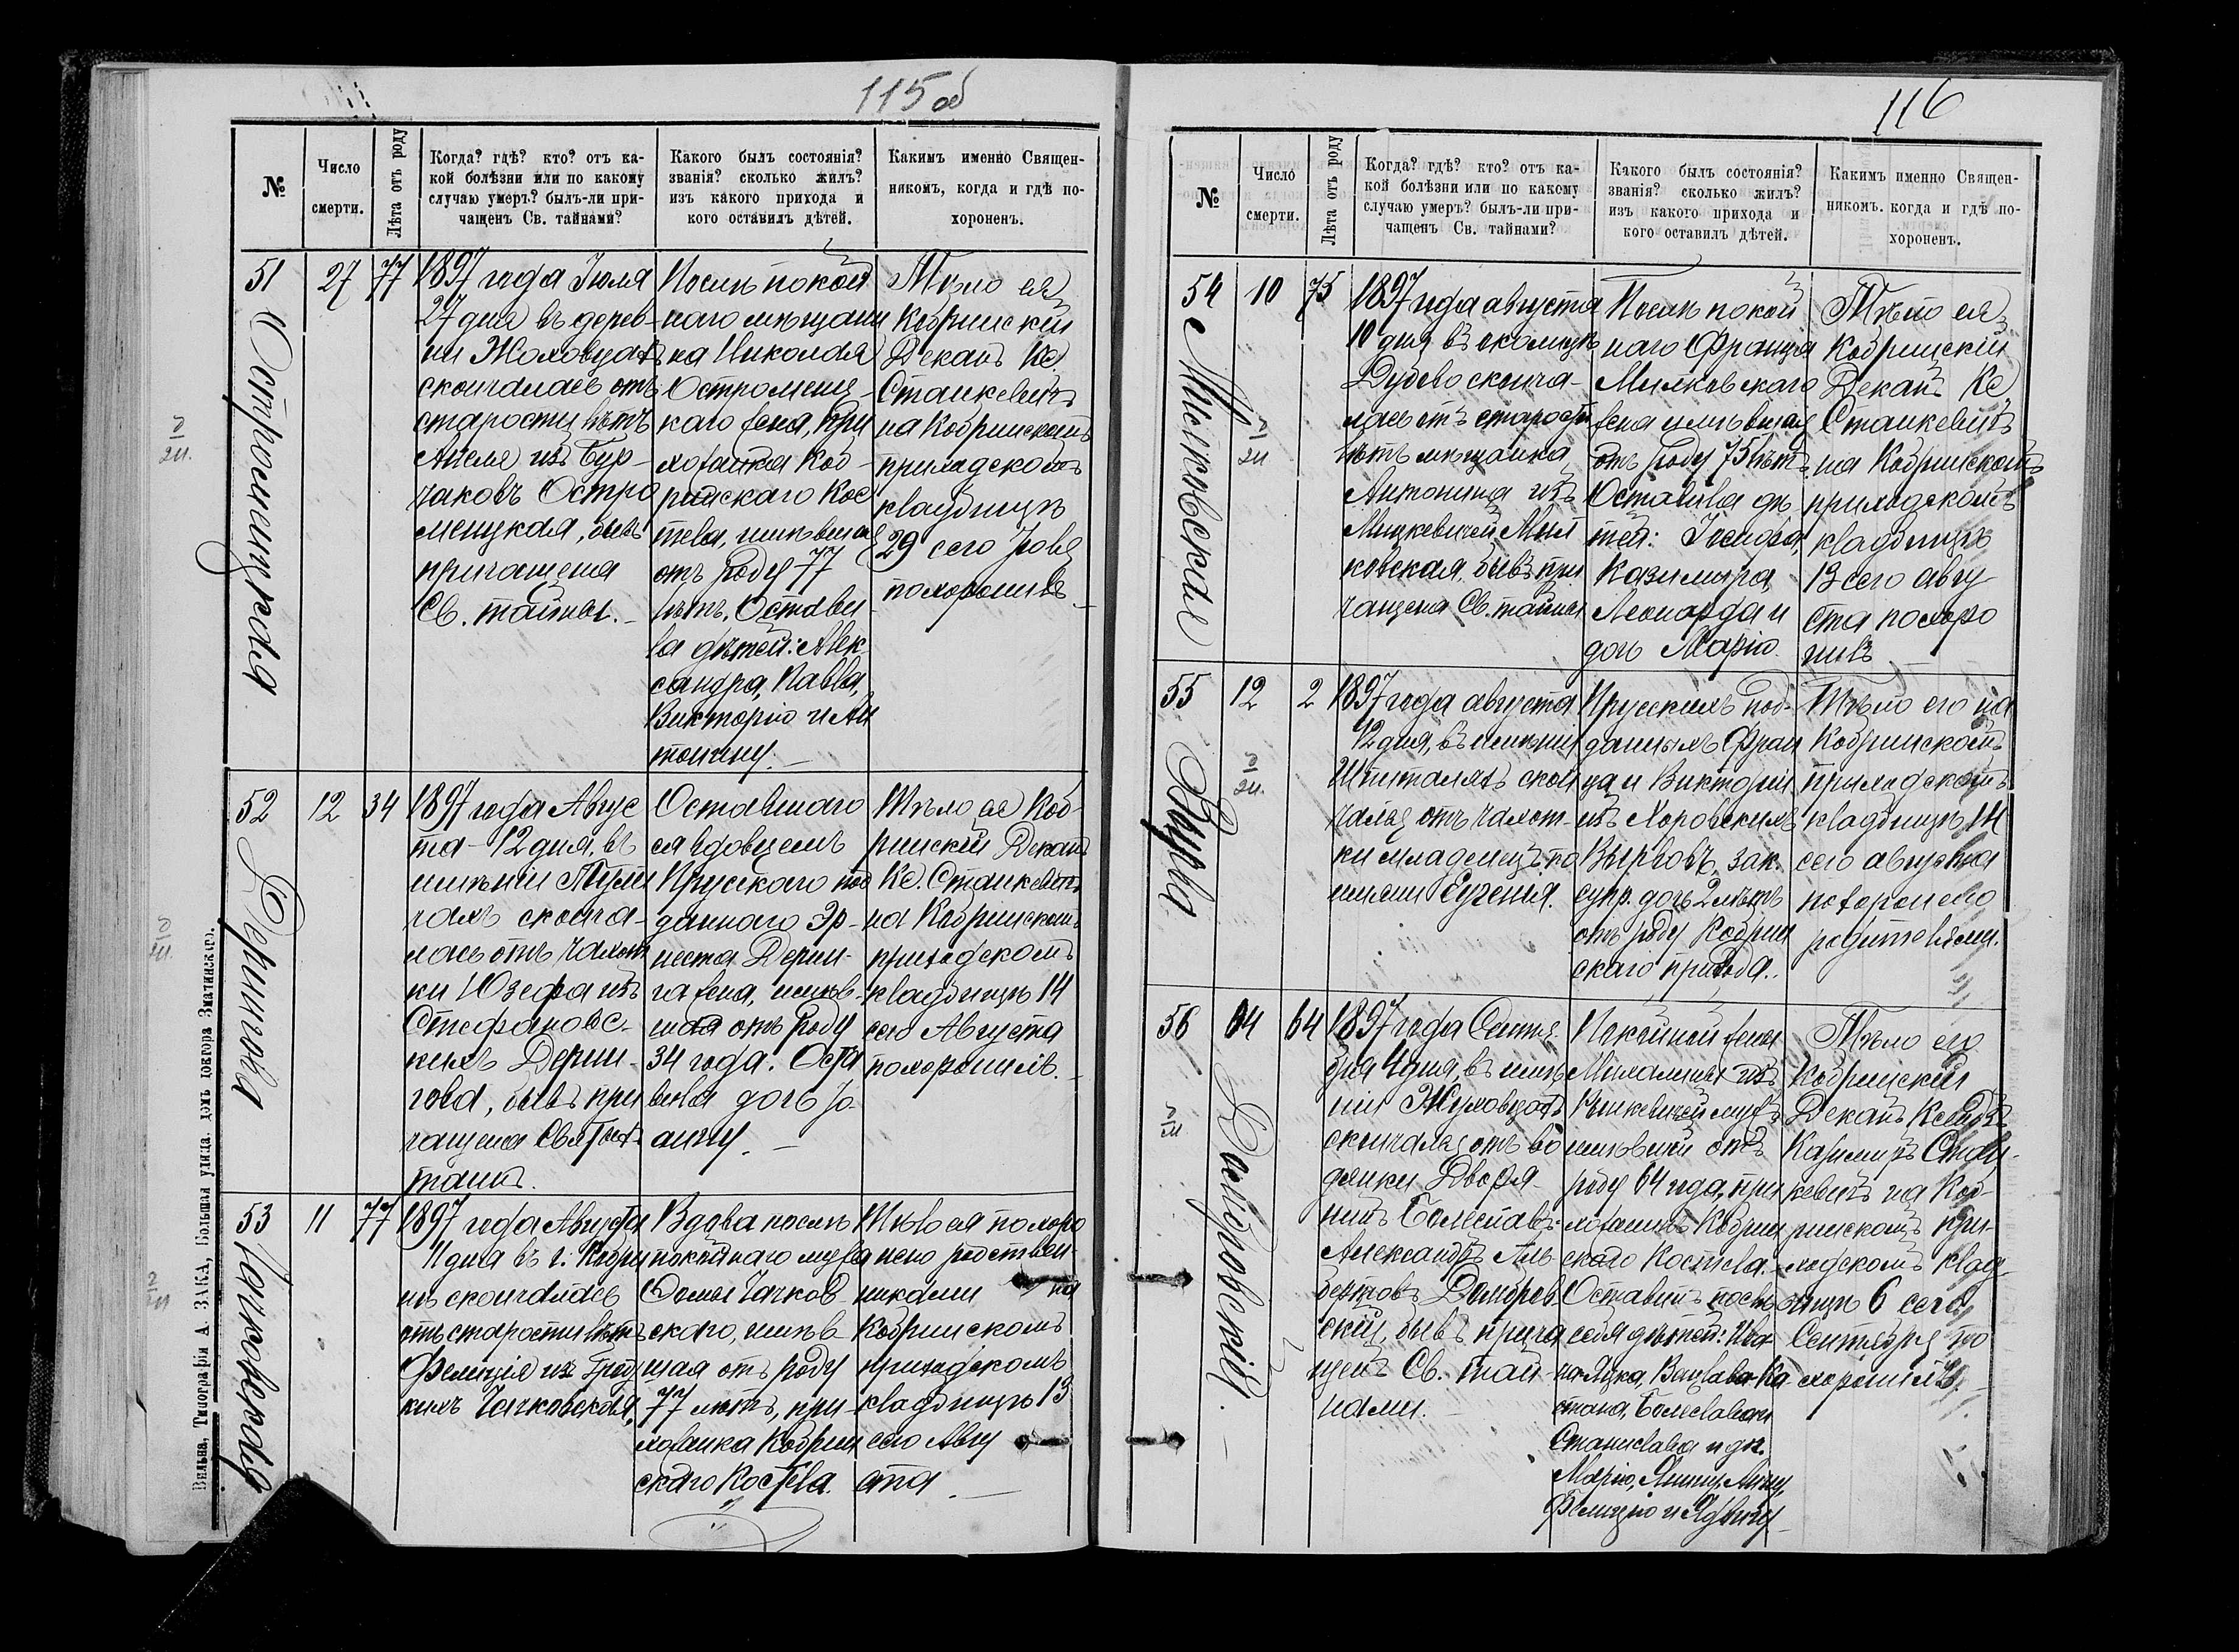 115 об
№
Число
смерти.
Лѣта отъ роду
Когда? гдѣ? кто? отъ ка-
кой болѣзни или по какому
случаю умеръ? былъ-ли при-
чащенъ Св. тайнами?
Какого былъ состоянія?
званія? сколько жилъ?
изъ какого прихода и
кого оставилъ дѣтей.
Какимъ именно Священ-
никомъ, когда и гдѣ по-
хороненъ.
51
27
77
Остромецкая
1897 года Іюля
27 дня въ дерев-
ни
скончалась отъ
старости лѣтъ
Анеля изъ Бур-
чаковъ Остро
мецкая, бывъ
причащена
Св. тайны.
Послѣ покой
наго мѣщани
на Николая
Остромец-
каго жена, при
хожанка Коб-
ринскаго Кос
тела, имѣвшая
отъ роду 77
лѣтъ. Остави-
ла дѣтей: Алек
сандра, Павла,
Викторію и Ан
тонину.
Тѣло ея
Кобринскій
Деканъ Кс.
Станкевичъ
на Кобринскомъ
приходскомъ
кладбищѣ
29 сего Іюля
похоронилъ
52
12
34
Дерингова
1897 года Авгус
та 12 дня, въ
имѣніи
сконча-
лась отъ чахот
ки Юзефа изъ
Стефановс-
кихъ Дерин-
гова, бывъ при
чащена Святыхъ
таинъ.
Оставшаго
ся вдовцемъ
Прусского под
даннаго Эр-
неста Дерин-
га жена, имѣв-
шая отъ роду
34 года. Оста
вила дочь Іо
анну.
Тѣло ея Коб-
ринскій Деканъ
Кс. Станкевичъ
на Кобринскомъ
приходскомъ
кладбищѣ 14
сего Августа
похоронилъ.
53
11
77
Чачковская
1897 года Августа
11 дня въ г. Кобри
нѣ скончалась
отъ старости лѣтъ
Фелиція изъ
кихъ Чачковская,
Вдова послѣ
покойнаго мужа
Ѳомы Чачков
скаго, имѣв
шая отъ роду
77 лѣтъ, при-
хожанка Кобрин
скаго Костела.
Тѣло ея похоро
нено родствен-
никами на
Кобринскомъ
приходскомъ
кладбищѣ 13
сего Авгу
ста
Вильна, Типографія А. ЗАКА, Большая улица. домъ доктора Зматинскаго.
116
№
Число
смерти.
Лѣта отъ роду
Когда? гдѣ? кто? отъ ка-
кой болѣзни или по какому
случаю умеръ? былъ-ли при-
чащенъ Св. тайнами?
Какого былъ состоянія?
званія? сколько жилъ?
изъ какого прихода и
кого оставилъ дѣтей.
Какимъ именно Священ-
никомъ. когда и гдѣ по-
хороненъ.
54
10
75
Милковская
1897 года августа
10 дня въ околицѣ
Дубово сконча-
лась отъ старости
лѣтъ мѣщанка
Антонина изъ
Мицкевичей Мил
ковская, бывъ при
чащена Св. тайны
Послѣ покой
наго Франца
Милковскаго
жена имѣвшая
отъ роду 75 лѣтъ.
Оставила дѣ
тей: Іосифа,
Казимира,
Леонарда и
дочь Марію.
Тѣло ея
Кобринскій
Деканъ Кс
Станкевичъ
на Кобринскомъ
приходскомъ
кладбищѣ
13 сего авгу
ста похоро
нилъ
55
12
2
1897 года августа
12 дня, въ имѣніи
Шпиталяхъ скон
чался отъ чахот-
ки младенецъ по
имени Евгенія.
Прусскихъ под-
данныхъ Фран
ца и Викторіи
изъ Хоровскихъ
зак.
супр. дочь 2 лѣтъ
отъ роду Кобрин
скаго прихода.
Тѣло его на
Кобринскомъ
приходскомъ
кладбищѣ 14
сего августа
похоронено
родителями.
56
04
64
Домбровскій.
1897 года Сентя
бря 4 дня, въ имѣ
ніи
скончался отъ во
дянки Дворя-
нинъ Болеславъ-
Александръ Аль
бертовъ Домбров
скій, бывъ прича
щенъ Св. тай
нами.
Покойной жены
Михалины изъ
мужъ
имѣвшій отъ
роду 64 года, при
хожанинъ Кобрин
скаго Костела.
Оставилъ послѣ
себя дѣтей: Ива
на, Вацлава, Ка
Болеслава и
Станислава и доч.
Марію, Янину, Анну,
Фелицію и Ядвигу
Тѣло его
Кобринскій
Деканъ Ксендзъ
Казимиръ Стан-
кевичъ на Коб-
ринскомъ при-
ходскомъ клад
бищѣ 6 сего
Сентября по
хоронилъ.